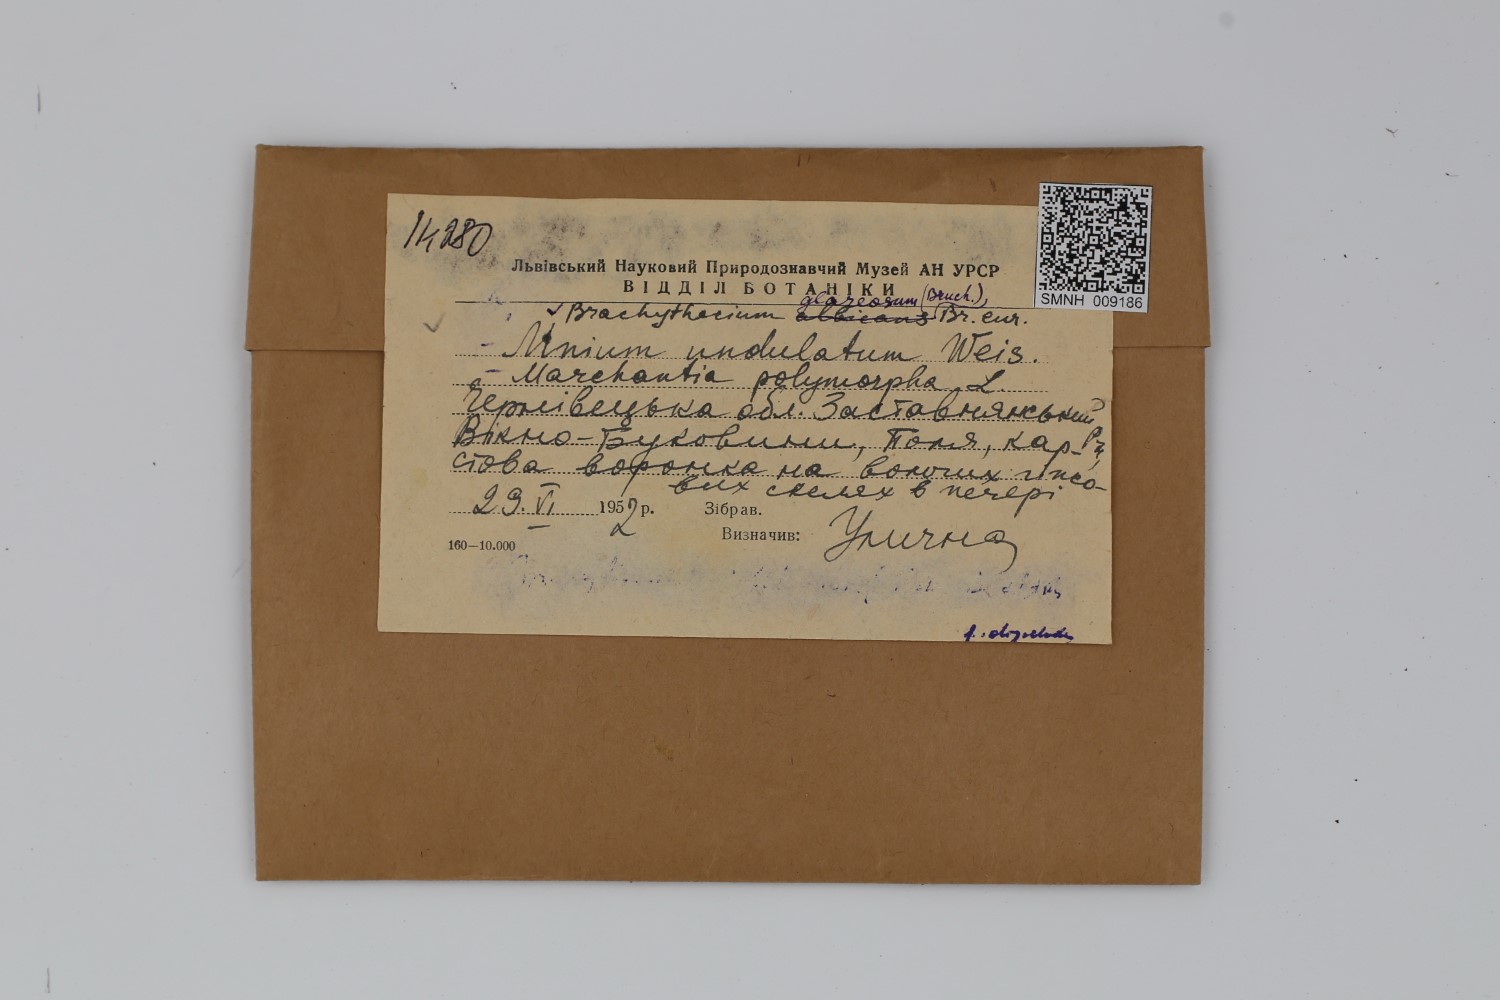 14280
SMNH 009186
Львівський Науковий Природознавчий Музей АН УРСР
ВІДДІЛ БОТАНІКИ
glareosum (Bruch.),
Brachythecium albicans Br. eur.
- Mnium undulatum Weis.
- Marchantia polymorpha L.
Чернівецька обл. Заставнянський
Вікно-Буковини, Поля, кар-
стова воронка на вогких гіпсо-
вих скелях в печері
29. VI 1952 р. Зібрав.
2
Визначив: Улична
160—10.000